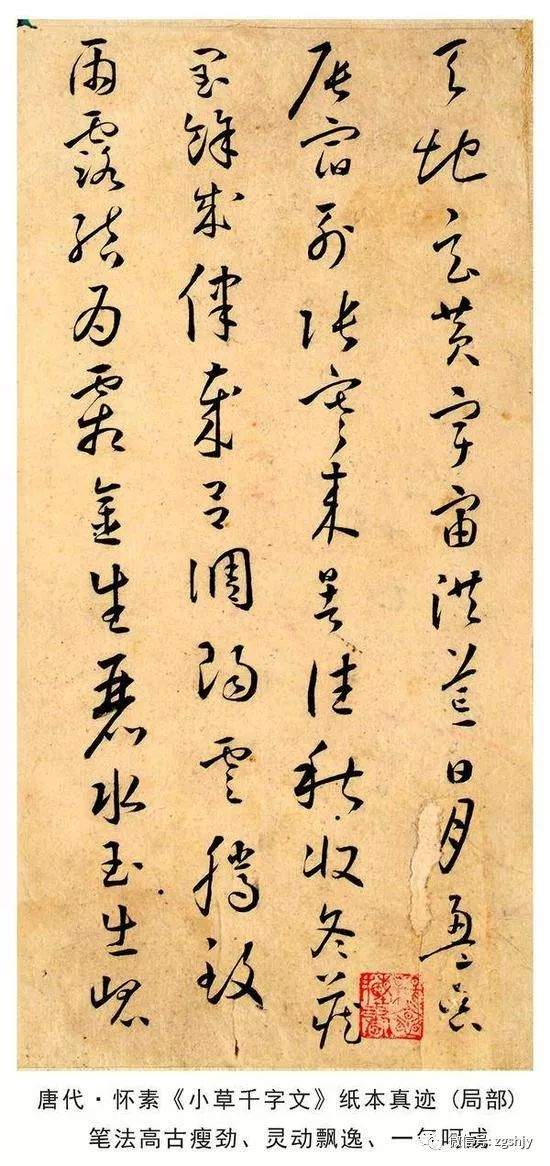 天地玄黄宇宙洪荒日月盈昃
辰宿列張寒来暑往秋收冬藏
閏餘成律歲吕調陽雲騰致
雨露結為霜金生麗水玉出崐
唐代·怀素《小草千字文》纸本真迹 (局部)
笔法高古瘦劲、灵动飘逸、一气呵成
微信号: zgshjy